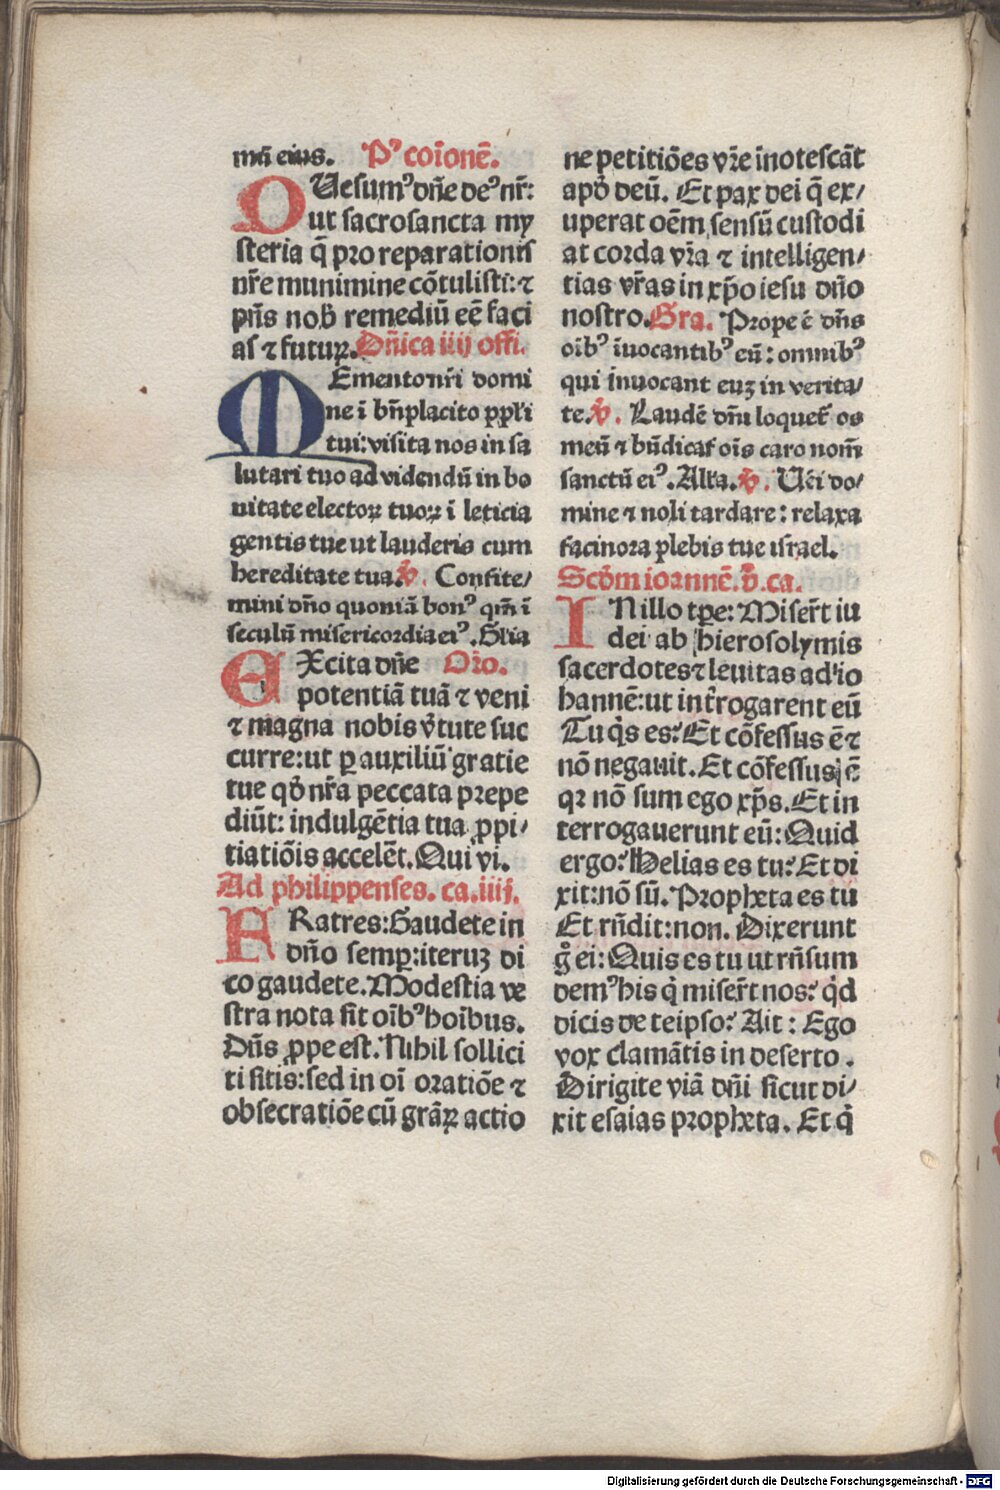 mū eius. Pꝰ coīonē.
QUesumꝰ dn̄e deꝰ nr̄:
ut sacrosancta my
steria q̄ pro reparationis
nr̄e munimine cōtulisti: ⁊
pn̄s nob̄ remediū eē faci
as ⁊ futuꝝ. Dn̄ica iiij offi.
MEmento nr̄i domi
ne ī bn̄placito ppl̄i
tui: visita nos in sa
lutari tuo ad videndū in bo
nitate electoꝝ tuoꝝ ī leticia
gentis tue ut lauderis cum
hereditate tua. ℣. Confite/
mini dn̄o quoniā bonꝰ qm̄ ī
seculū misericordia eiꝰ. Gl̄ia
EXcita dn̄e Orō.
potentiā tuā ⁊ veni
⁊ magna nobis v̄tute suc
curre: ut ꝑ auxiliū gratie
tue qd̄ nr̄a peccata prepe
diūt: indulgētia tua ꝓpi/
tiatiōis accelēt. Qui vi.
Ad philippenses. ca. iiij.
FRatres: Gaudete in
dn̄o semꝑ: iteruꝫ di
co gaudete. Modestia ve
stra nota sit oībꝰ hoībus.
Dn̄s ꝓpe est. Nihil sollici
ti sitis: sed in oī oratiōe ⁊
obsecratiōe cū grāꝝ actio
ne petitiōes vr̄e īnotescāt
apd̄ deū. Et pax dei q̄ ex/
uperat oēm sensū custodi
at corda vr̄a ⁊ intelligen/
tias vr̄as in xp̄o iesu dn̄o
nostro. Gra. Prope ē dn̄s
oībꝰ īuocantibꝰ eū: omnibꝰ
qui īnuocant euꝫ in verita/
te. ℣. Laudē dn̄i loquet̄ os
meū ⁊ bn̄dicat̄ oīs caro nom̄
sanctū eiꝰ. Alr̄a. ℣. Uēi do/
mine ⁊ noli tardare: relaxa
facinora plebis tue israel.
Scd̄m ioannē. p̄. ca.
IN illo tꝑe: Miser̄t iu
dei ab hierosolymis
sacerdotes ⁊ leuitas ad io
hannē: ut int̄rogarent eū
Tu qͥs es? Et cōfessus ē ⁊
nō negauit. Et cōfessus ē
qꝛ nō sum ego xp̄s. Et in
terrogauerunt eū: Quid
ergo? Helias es tu? Et di
xit: nō sū. Propheta es tu
Et rn̄dit: non. Dixerunt
gͦ ei: Quis es tu ut rn̄sum
demꝰ his qͥ miser̄t nos? qͥd
dicis de teipso? Ait: Ego
vox clamātis in deserto.
Dirigite viā dn̄i sicut di/
xit esaias propheta. Et qͥ
Digitalisierung gefördert durch die Deutsche Forschungsgemeinschaft - DFG